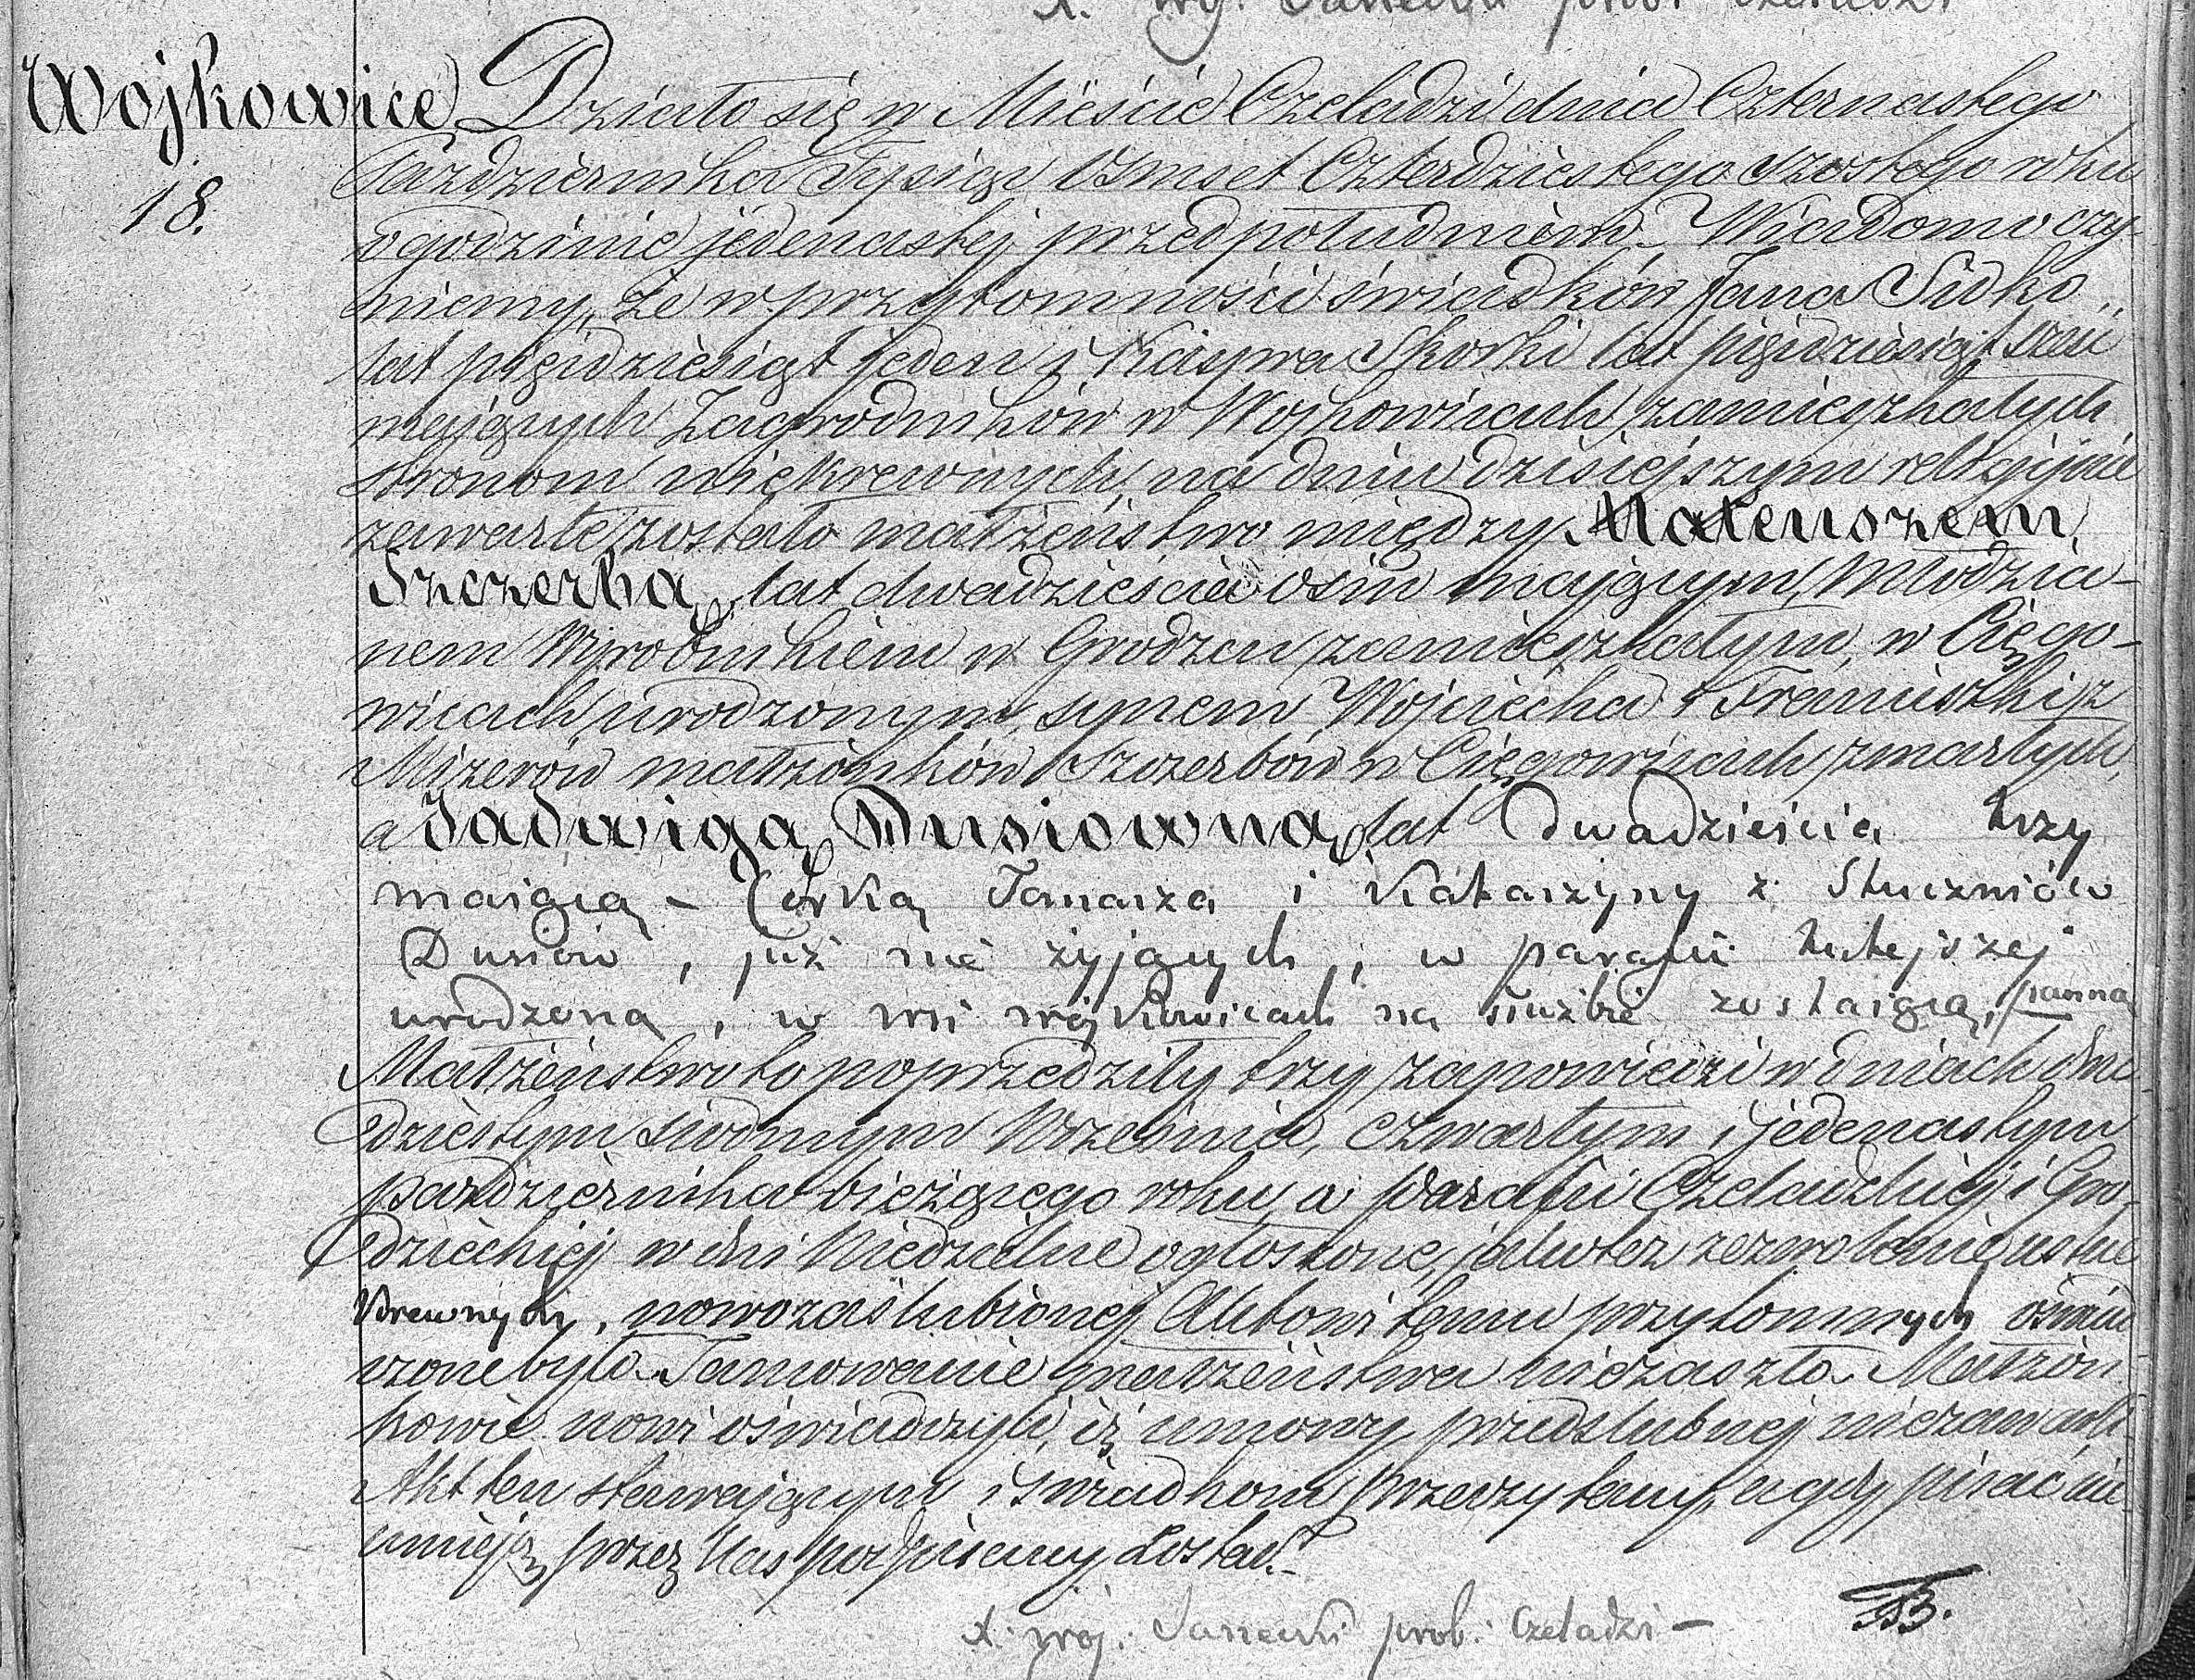 Wojkowice
18.
Działo się w Mieście Czeladzi dnia Czternastego
Października Tysiąc Ośmset Czterdziestego szóstego roku
o godzinie jedenastej przed południem. Wiadomo czy-
niemy, że w przytomności świadków Jana Sidło
lat pięćdziesiąt jeden i Kaspra Skorki lat pięćdziesiąt sześć
mających Zagrodników w Wojkowicach zamieszkałych
stronom niekrewnych, na dniu dzisiejszym religijnie
zawarte zostało małżeństwo między Mateuszem
Szczerbą, lat dwadzieścia ośm mającym, Młodzia-
nem Wyrobnikiem w Grodzcu zamieszkałym, w Cięgo-
wicach urodzonym, synem Wojciecha i Franciszki z
Mizerów małżonków Szczerbów w Cięgowicach zmarłych,
a Jadwigą Dusiowną, lat dwadzieścia trzy
maiącą – Córką Tomasza i Katarzyny z Stuczniów
Dusiów, już nie żyjących, w parafii tutejszej
urodzoną, w wsi Wojkowicach na służbie zostaiącą, panną
Małżeństwo to poprzedziły trzy zapowiedzi w dniach dwu-
dziestym siódmym Września, czwartym i jedenastym
października bieżącego roku, w Parafii Czeladzkiej i Gro-
dzieckiej w dni Niedzielne ogłoszone, jako też zezwolenie ustne
Krewnych, nowozaślubionej Aktowi temu przytomnych oświad-
czone było. Tamowanie małżeństwa nie zaszło. Małżon-
kowie nowi oświadczyli, iż umowy przedślubnej nie zawarli.
Akt ten stawającym i świadkom przeczytany, a gdy pisać nie
umieją, przez Nas podpisany został.
X. woj. prob. Czeladzi –